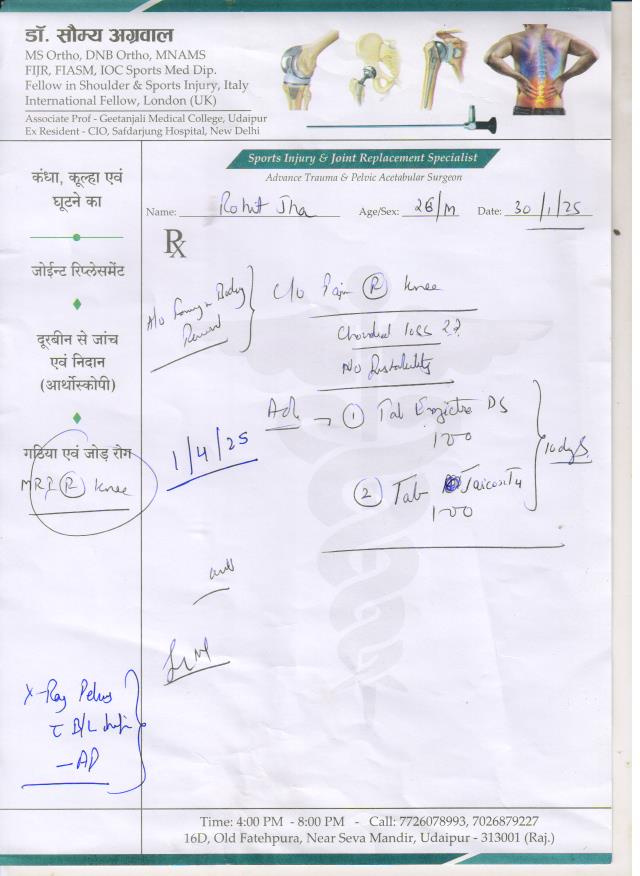 डॉ. सौम्य अग्रवाल
MS Ortho, DNB Ortho, MNAMS
FIJR, FIASM, IOC Sports Med Dip.
Fellow in Shoulder & Sports Injury, Italy
International Fellow, London (UK)
Associate Prof - Geetanjali Medical College, Udaipur
Ex Resident - CIO, Safdarjung Hospital, New Delhi
Sports Injury & Joint Replacement Specialist
Advance Trauma & Pelvic Acetabular Surgeon
Name: Rohit Jha Age/Sex: 26/M Date: 30/1/25
Rx
कंधा, कूल्हा एवं
घूटने का
जोईन्ट रिप्लेसमेंट
दूरबीन से जांच
एवं निदान
(आर्थोस्कोपी)
गठिया एवं जोड़ रोग
MRI R knee
H/o
C/o Pain R knee
loss
No Instability
1/4/25
Adv → 1 Tab DS
1-0-0
2 Tab
1-0-0
10 days
X-Ray Pelvis
B/L
- AP
Time: 4:00 PM - 8:00 PM - Call: 7726078993, 7026879227
16D, Old Fatehpura, Near Seva Mandir, Udaipur - 313001 (Raj.)